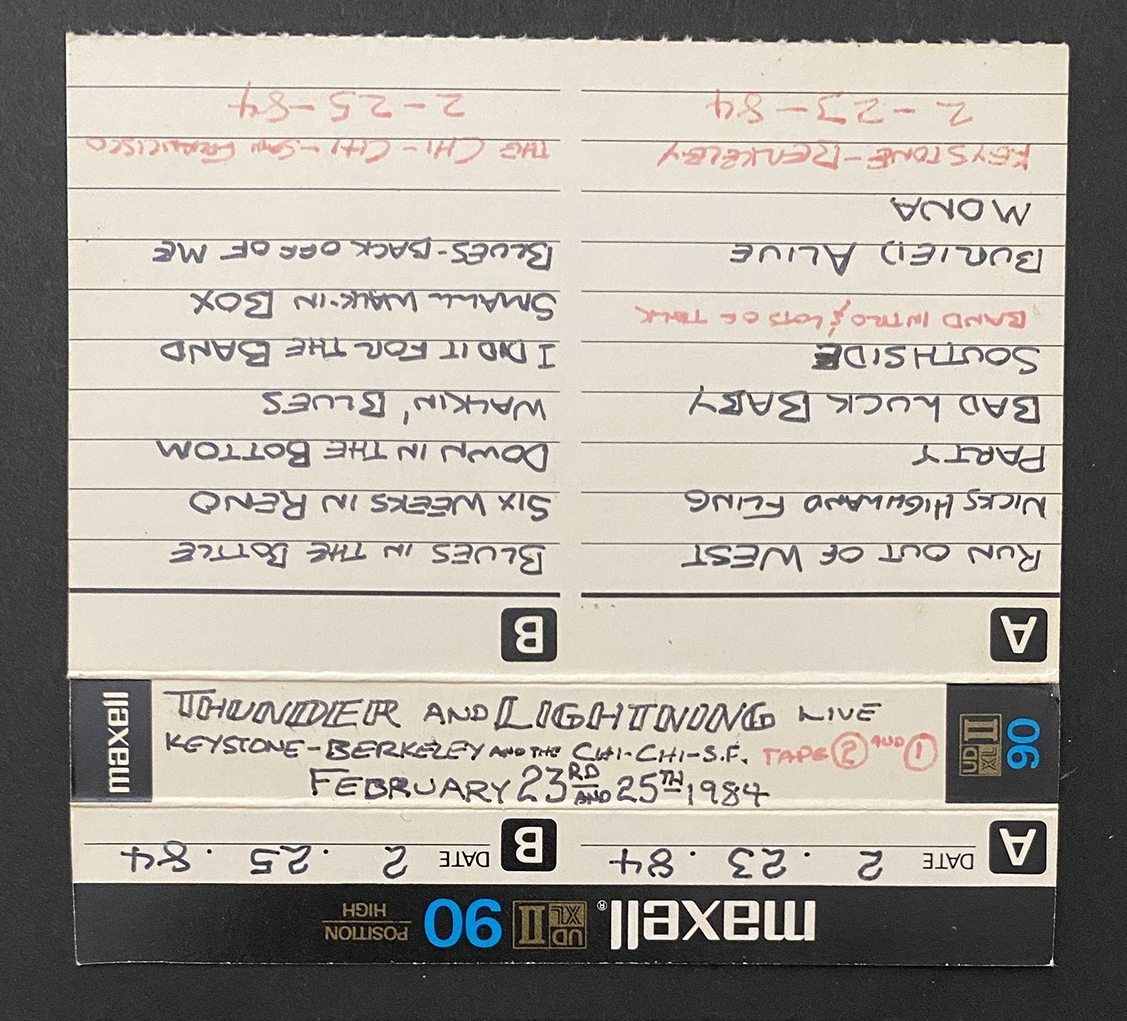 maxell® UDXL II 90 POSITION HIGH
A DATE 2 . 23 . 84
B DATE 2 . 25 . 84
maxell
THUNDER AND LIGHTNING LIVE
KEYSTONE-BERKELEY AND THE CHI-CHI-S.F. TAPE 2 AND 1
FEBRUARY 23RD AND 25TH 1984
UDXL II 90
A
RUN OUT OF WEST
NICKS HIGHLAND FLING
PARTY
BAD LUCK BABY
SOUTHSIDE
BAND INTRO & LOTS OF TALK
BURIED ALIVE
MONA
KEYSTONE-BERKELEY
2-23-84
B
BLUES IN THE BOTTLE
SIX WEEKS IN RENO
DOWN IN THE BOTTOM
WALKIN' BLUES
I DID IT FOR THE BAND
SMALL WALK-IN BOX
BLUES-BACK OFF OF ME
THE CHI-CHI-SAN FRANCISCO
2-25-84